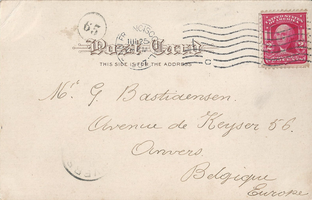 65
Post Card
THIS SIDE IS FOR THE ADDRESS
Mr G Bastiaensen.
Avenue de Keyser 56.
Anvers
Belgique
Europe